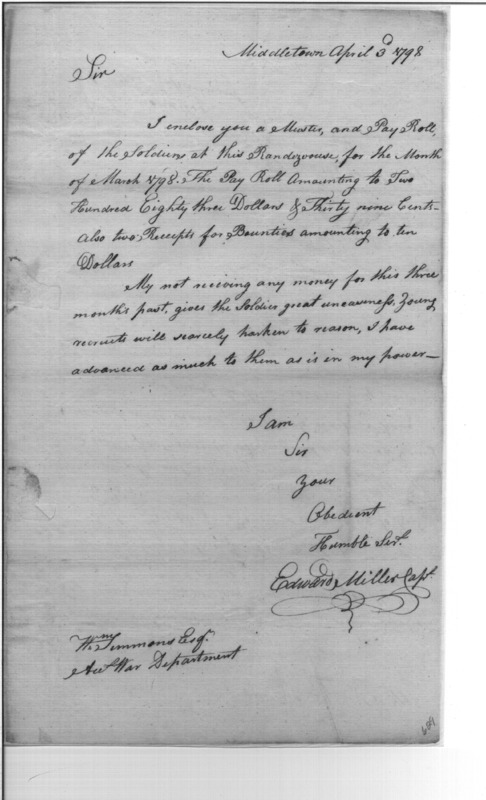 Middletown April 3d 1798
Sir
I enclose you a Muster, and Pay Roll,
of the Soldiers at this Randezvouse, for the Month
of March 1798. The Pay Roll Amounting to Two
Hundred Eighty three Dollars & Thirty nine Cents-
also two Receipts for Bounties amounting to ten
Dollars
My not reciving any money for this three
months past, gives the Soldier great uneasiness, Young
recruits will scarcely harken to reason, I have
advanced as much to them as is in my power—
I am
Sir
Your
Obedient
Humble Sert.
Edward Miller Capt.
Wm. Simmons Esqr.
Acct. War Department